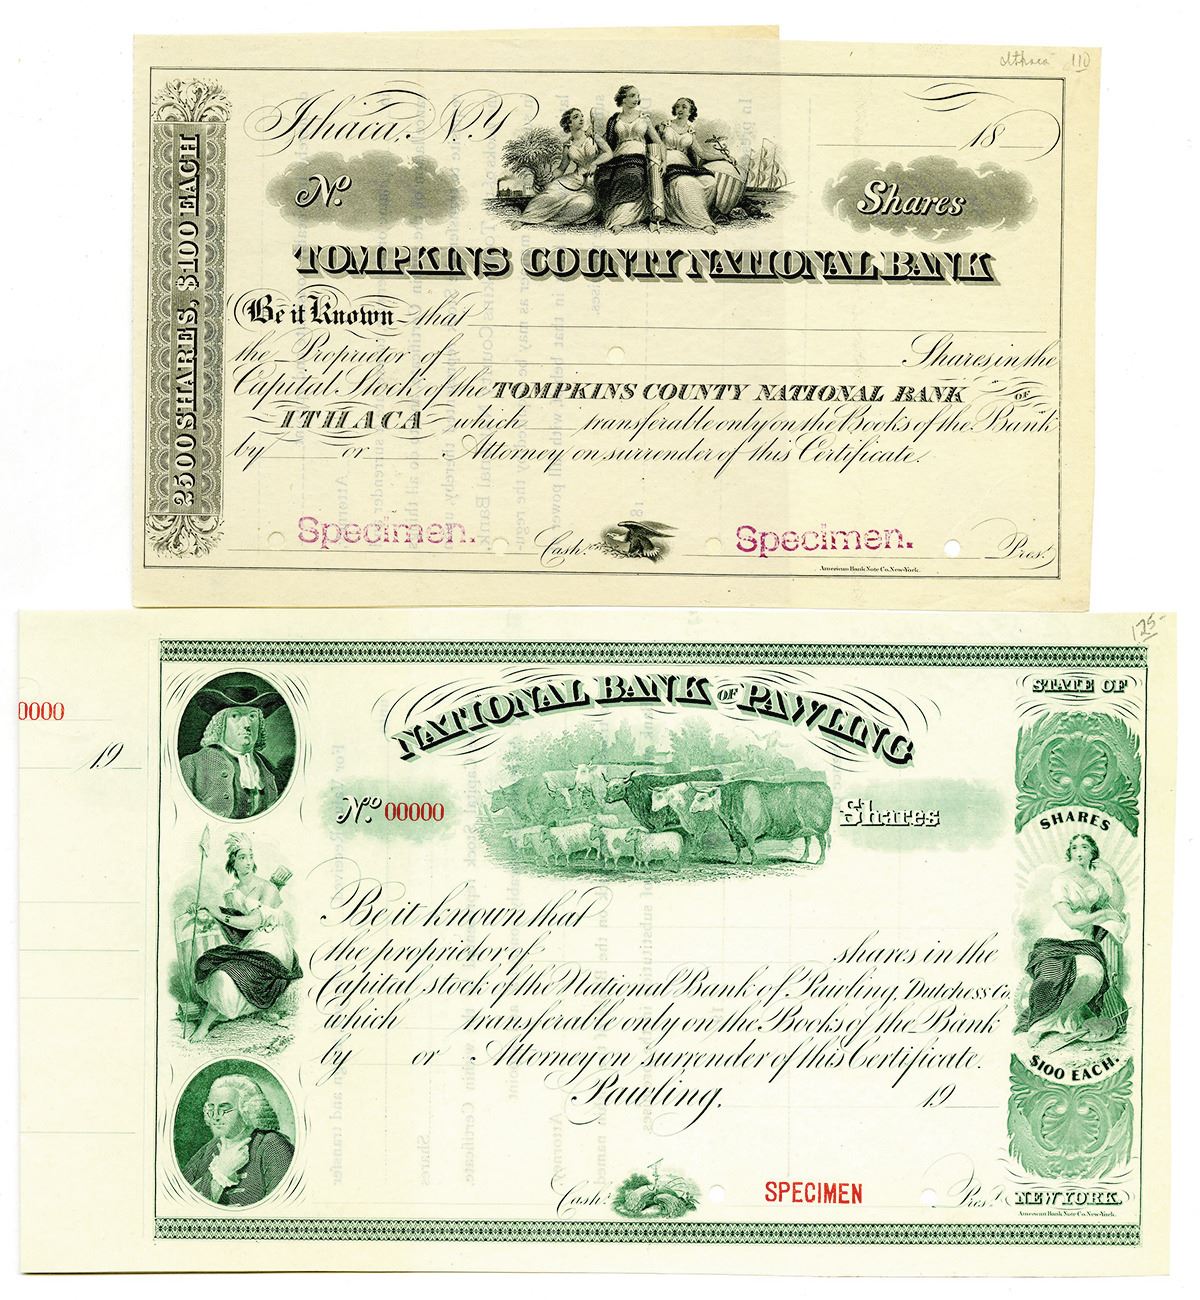 Ithaca 110
Ithaca, N.Y. 18
No. Shares
TOMPKINS COUNTY NATIONAL BANK
2500 SHARES, $100 EACH
Be it Known that
the Proprietor of Shares in the
Capital Stock of the TOMPKINS COUNTY NATIONAL BANK OF
ITHACA which transferable only on the Books of the Bank
by or Attorney on surrender of this Certificate.
Specimen. Cashr. Specimen. Prest.
American Bank Note Co. New-York.
125-
0000
19
NATIONAL BANK OF PAWLING
STATE OF
No. 00000 Shares
SHARES
Be it known that
the proprietor of shares in the
Capital stock of the National Bank of Pawling, Dutchess Co.
which transferable only on the Books of the Bank
by or Attorney on surrender of this Certificate.
$100 EACH.
Pawling, 19
Cashr. SPECIMEN Prest.
NEW YORK.
American Bank Note Co. New-York.